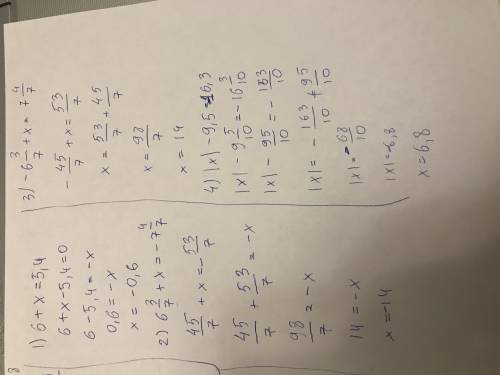 1) 6+x=5,4
6+x-5,4=0
6-5,4=-x
0,6=-x
x=-0,6
2) 6 3/7 + x = -7 4/7
45/7 + x = -53/7
45/7 + 53/7 = -x
98/7 = -x
14=-x
x=-14
3) -6 3/7 + x = 7 4/7
-45/7 + x = 53/7
x = 53/7 + 45/7
x = 98/7
x = 14
4) |x| - 9,5 = -16,3
|x| - 9 5/10 = -16 3/10
|x| - 95/10 = -163/10
|x| = -163/10 + 95/10
|x| = -68/10
|x| = -6,8
x = 6,8